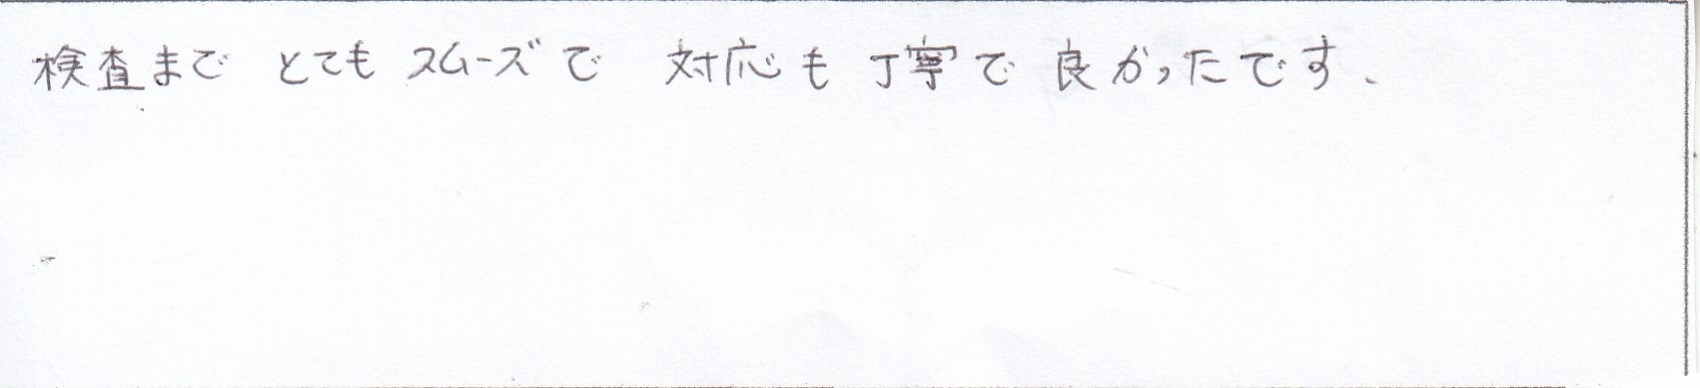 検査まで とても スムーズで 対応も 丁寧で 良かったです、